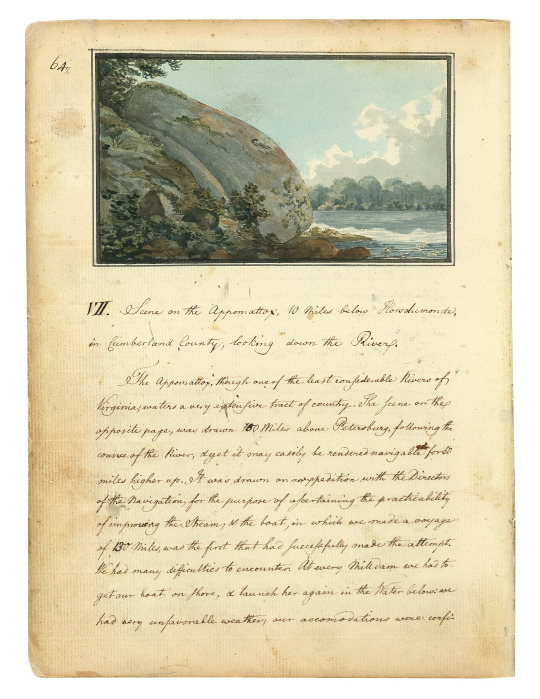 64.
VII. Scene on the Appomattox, 10 Miles below Horsdumonde,
in Cumberland County, looking down the River.
The Appomattox, though one of the least considerable Rivers of
Virginia, waters a very extensive tract of country. The scene on the
opposite page, was drawn 130 Miles above Petersburg, following the
course of the River, & yet it may easily be rendered navigable for 50
miles higher up. It was drawn on an expedition with the Directors
of the Navigation, for the purpose of ascertaining the practicability
of improving the Stream, & the boat, in which we made a voyage
of 130 Miles, was the first that had successfully made the attempt.
We had many difficulties to encounter. At every Milldam we had to
get our boat on shore, & launch her again in the Water below: we
had very unfavorable weather; our accomodations were confi-